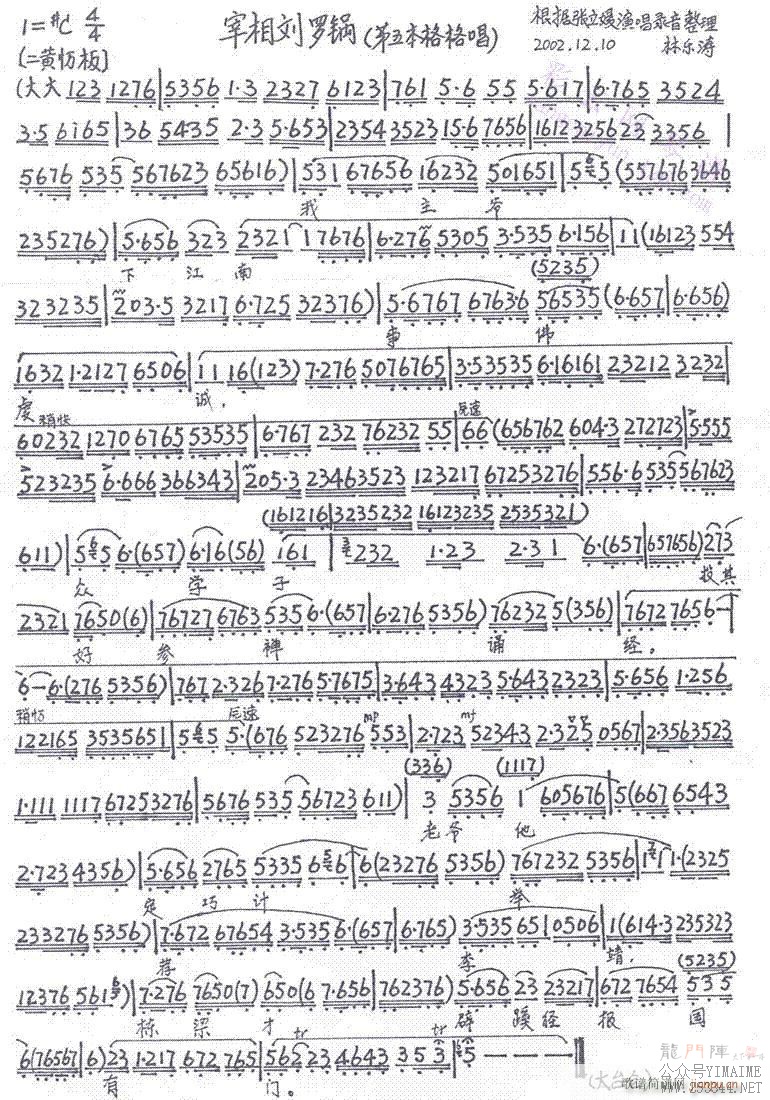 1=#C 4/4
宰相刘罗锅(第五本格格唱)
根据张立媛演唱录音整理
2002.12.10 林乐涛
[二黄慢板]
(大大 123 1276 | 5356 1·3 2327 6123 | 761 5·6 55 5·617 | 6·765 3524
3·5 6765 | 36 5435 2·3 5·653 | 2354 3523 15·6 7656 | 1612 3256 23 3356 |
5676 535 567623 65616) | 531 67656 16232 501651 | 5 5 (557676 3646
我 主 爷
235276) | 5·656 323 2321 17676 | 6·276 5305 3·535 6·156 | 11 (16123 554
下 江 南
(5235)
323235 | 203·5 3217 6·725 32376) | 5·6767 6763·6 56535 (6·657 | 6·656)
事 佛
1632 1·2127 6506 | 11 16(123) 7·276 5076765 | 3·53535 6·16161 23212 3232 |
虔 诚,
稍快 尾速
60232 1270 6765 53535 | 6·767 232 76232 55 | 66 (656762 604·3 272723 | 5·555
523235 6·666 366343 | 205·3 23463523 123217 67253276 | 556·6 535 567623
(161216 | 3235232 16123235 2535321)
611) | 5 5 6·(657) 6·16(56) 161 | 232 1·23 2·31 6·(657 | 657656) 273
众 学 子 投其
2321 7650(6) | 76727 6763 535 6·(657 | 6·276 5356) 76232 5(356) | 7672 7656 —
好 参 禅 诵 经。
6 — 6·(276 5356) | 767 2·326 7·276 5·7675 | 3·643 4323 5·643 2323 | 5·656 1·256
稍慢 尾速 mp mf
122165 3535651 | 5 5 5·(676 523276 553 | 2·723 52343 2·325 0567 | 2·3563523
(336) (1117)
1·111 1117 67253276 | 5676 535 56723 611) | 3 5356 1 605676 | 5(667 6543
老爷 他
2·723 4356) | 5·656 2765 5335 6 6 | 6(23276 5356) 767232 5356 | 1 1·(2325
定 巧 计 举
233276 5356) | 7·672 67654 3·535 6·(657 | 6·765) 3·535 651 0506 | 1(614·3 235323
荐 李 靖,
(5235)
12376 561) | 7·276 7650(7) 650(6 7·656 | 762376) 5·656 23 23217 | 672 7654 535
栋 梁 才 辟 蹊 径 报 国
6(76567 | 6) 23 1·217 672 765 | 562 23 4643 353 | 5 — — — ‖
有 门。
(大台仓)
龍門陣
公众号YIMAIME
歌谱简谱网 jianpu.cn